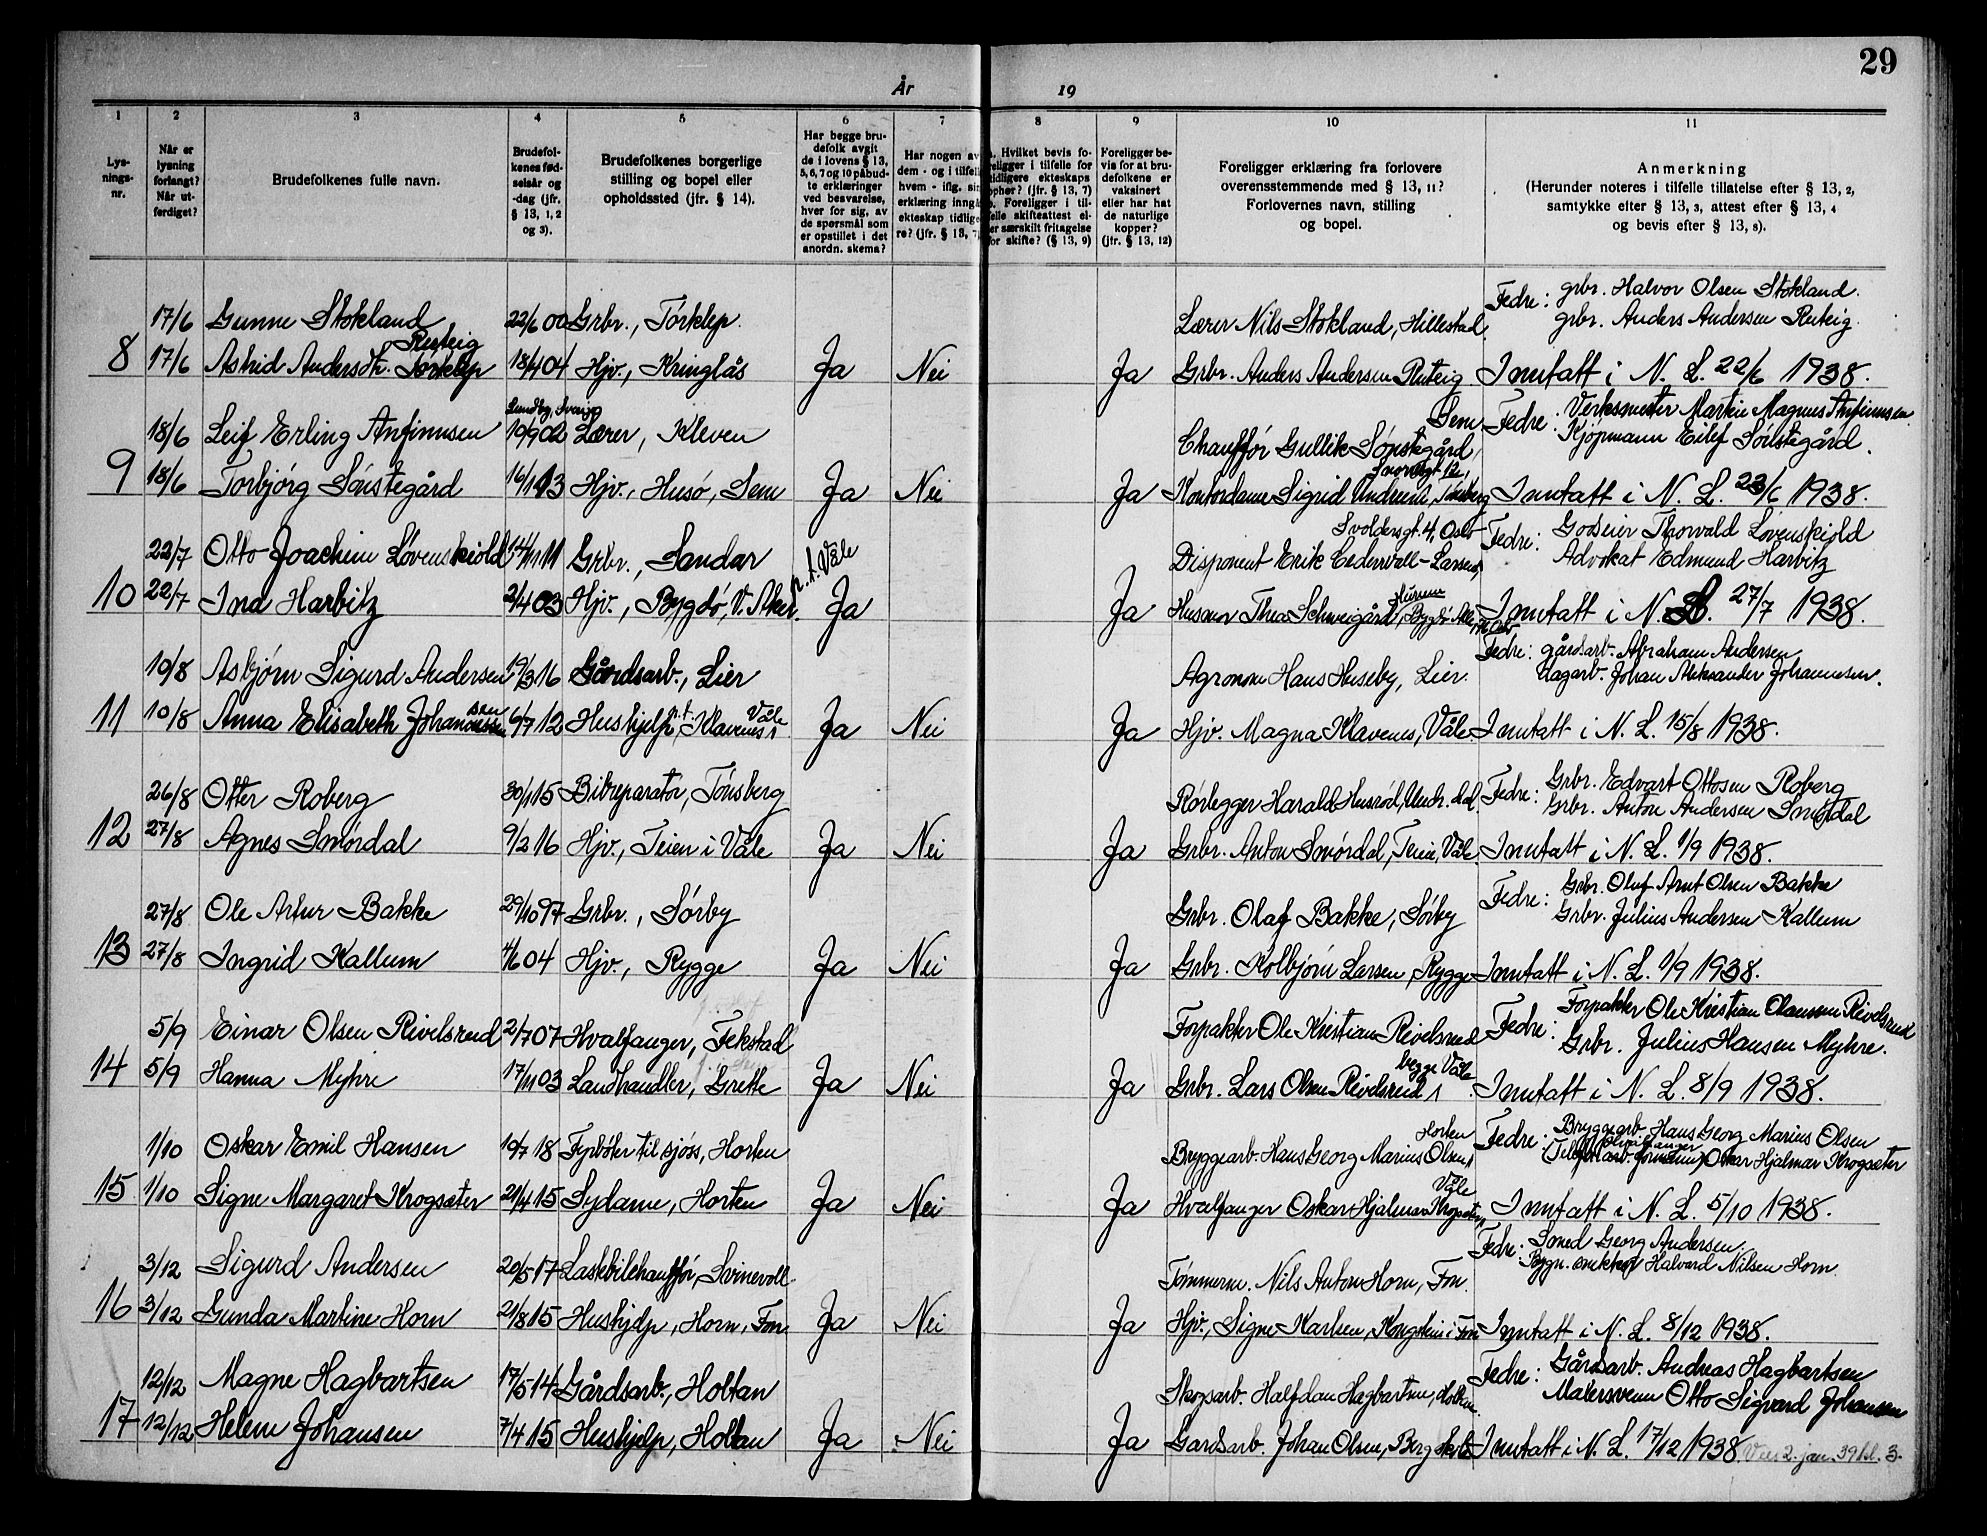 29
År 19
1 2 3 4 5 6 7 8 9 10 11
Lys-
nings-
nr.
Når er
lysning
forlangt?
Når ut-
ferdiget?
Brudefolkenes fulle navn.
Brudefol-
kenes fød-
selsår og
-dag (jfr.
§ 13, 1, 2
og 3).
Brudefolkenes borgerlige
stilling og bopel eller
opholdssted (jfr. § 14).
Har begge bru-
defolk avgit
de i lovens § 13,
5, 6, 7 og 10 påbud-
te erklæringer
ved besvarelse,
hver for sig, av
de spørsmål som
er opstillet i det
anordn. skema?
Har nogen av
dem - og i tilfelle
hvem - iflg. sin
erklæring inngå
ekteskap tidlige
re? (jfr. § 13, 7
Hvilket bevis fo-
religger i tilfelle for
tidligere ekteskaps
opher? (jfr. § 13, 7)
Foreligger i til-
felle skifteattest el-
er særskilt fritagelse
for skifte? (§ 13, 9)
Foreligger be-
vis for at bru-
defolkene er
vaksinert
eller har hat
de naturlige
kopper?
(jfr. § 13, 12)
Foreligger erklæring fra forlovere
overensstemmende med § 13, 11?
Forlovernes navn, stilling
og bopel.
Anmerkning
(Herunder noteres i tilfelle tillatelse efter § 13, 2,
samtykke efter § 13, 3, attest efter § 13, 4
og bevis efter § 13, 8).
17/6 Gunne Stokland 22/6 00 Grbr., Torklep. Lærer Nils Stokland, Hillestad. Fedre: grbr. Halvor Olsen Stokland.
grbr. Anders Andersen Ruteig.
Ruteig
8 17/6 Astrid Andersdtr. Torklep 18/4 04 Hjv., Kringlås Ja Nei Ja Grbr. Anders Andersen Ruteig Inntatt i N. L. 22/6 1938.
Lundby, Sverige
18/6 Leif Erling Anfinnsen 10/9 02 Lærer, Kleven Chauffør Gullik Sønstegård, Sem Fedre: Verksmester Martin Magnus Anfinnsen.
Kjøpmann Eilef Sønstegård.
9 18/6 Torbjørg Sønstegård 16/1 13 Hjv., Husø, Sem Ja Nei Ja Kontordame Sigrid Inntatt i N. L. 23/6 1938.
22/7 Otto Joachim Løvenskiold 11 Grbr., Sandar p. t. Våle Disponent Erik Cedervall-Larsen, Svoldersgt. 4, Oslo Fedre: Godseier Thorvald Løvenskiold
Advokat Edmund Harbitz
10 22/7 Ina Harbitz 2/4 03 Hjv., Bygdø, V. Aker. Ja Ja Husmor Thea Schweigård, Bygdø Inntatt i N. L. 27/7 1938.
10/8 Asbjørn Sigurd Andersen 19/3 16 Gårdsarb., Lier Agronom Hans Huseby, Lier. Fedre: gårdsarb. Abraham Andersen
Dagarb. Johan Aleksander Johannesen.
11 10/8 Anna Elisabeth Johannessen 6/7 12 Hushjelp, p.t. Klavenes, Våle Ja Nei Ja Hjv. Magna Klavenes, Våle. Inntatt i N. L. 15/8 1938.
26/8 Otter Roberg 30/1 15 Bilreparatør, Tønsberg Rørlegger Harald Husrød, Undr.dal. Fedre: Grbr. Edvart Ottosen Roberg
Grbr. Anton Andersen Smørdal
12 27/8 Agnes Smørdal 9/2 16 Hjv., Teien i Våle Ja Nei Ja Grbr. Anton Smørdal, Teien, Våle. Inntatt i N. L. 1/9 1938.
27/8 Ole Artur Bakke 29/10 97 Grbr., Sørby Grbr. Olaf Bakke, Sørby Fedre: Grbr. Oluf Arnt Olsen Bakke
Grbr. Julius Andersen Kallum
13 27/8 Ingrid Kallum 4/6 04 Hjv., Rygge Ja Nei Ja Grbr. Kolbjørn Larsen, Rygge Inntatt i N. L. 1/9 1938.
5/9 Einar Olsen Rivelsrud 2/7 07 Hvalfanger, Fekstad Forpakter Ole Kristian Rivelsrud Fedre: Forpakter Ole Kristian Rivelsrud
Grbr. Julius Hansen Myhre.
14 5/9 Hanna Myhre 17/11 03 Landhandler, Grette Ja Nei Ja Grbr. Lars Olsen Rivelsrud, begge Våle. Inntatt i N. L. 8/9 1938.
1/10 Oskar Emil Hansen 19/7 18 Fyrbøter til sjøss, Horten Bryggearb. Hans Georg Marius Olsen, Horten Fedre: Bryggearb. Hans Georg Marius Olsen
Hvalfanger Oskar Hjalmar Krogsæter
15 1/10 Signe Margaret Krogsæter 21/4 15 Sydame, Horten Ja Nei Ja Hvalfanger Oskar Hjalmar Krogsæter, Våle Inntatt i N. L. 5/10 1938.
3/12 Sigurd Andersen 20/5 17 Lastebilchauffør, Svinevoll Tømmerm. Nils Anton Horn, Fon. Fedre: Smed Georg Andersen.
Bygn. snekker Halvard Nilsen Horn.
16 3/12 Gunda Martine Horn 21/8 15 Hushjelp, Horn, Fon Ja Nei Ja Hjv., Signe Karlsen, Kongstein i Fon Inntatt i N. L. 8/12 1938.
12/12 Magne Hagbartsen 17/5 14 Gårdsarb., Holtan Skogsarb. Halfdan Hagbartsen, Holtan. Fedre: Gårdsarb. Andreas Hagbartsen
Malersvenn Otto Sigvard Johansen
17 12/12 Helene Johansen 7/4 15 Hushjelp, Holtan Ja Nei Ja Gardsarb. Johan Olsen, Berg Inntatt i N. L. 17/12 1938. 2. jan. 39 bl. 3.